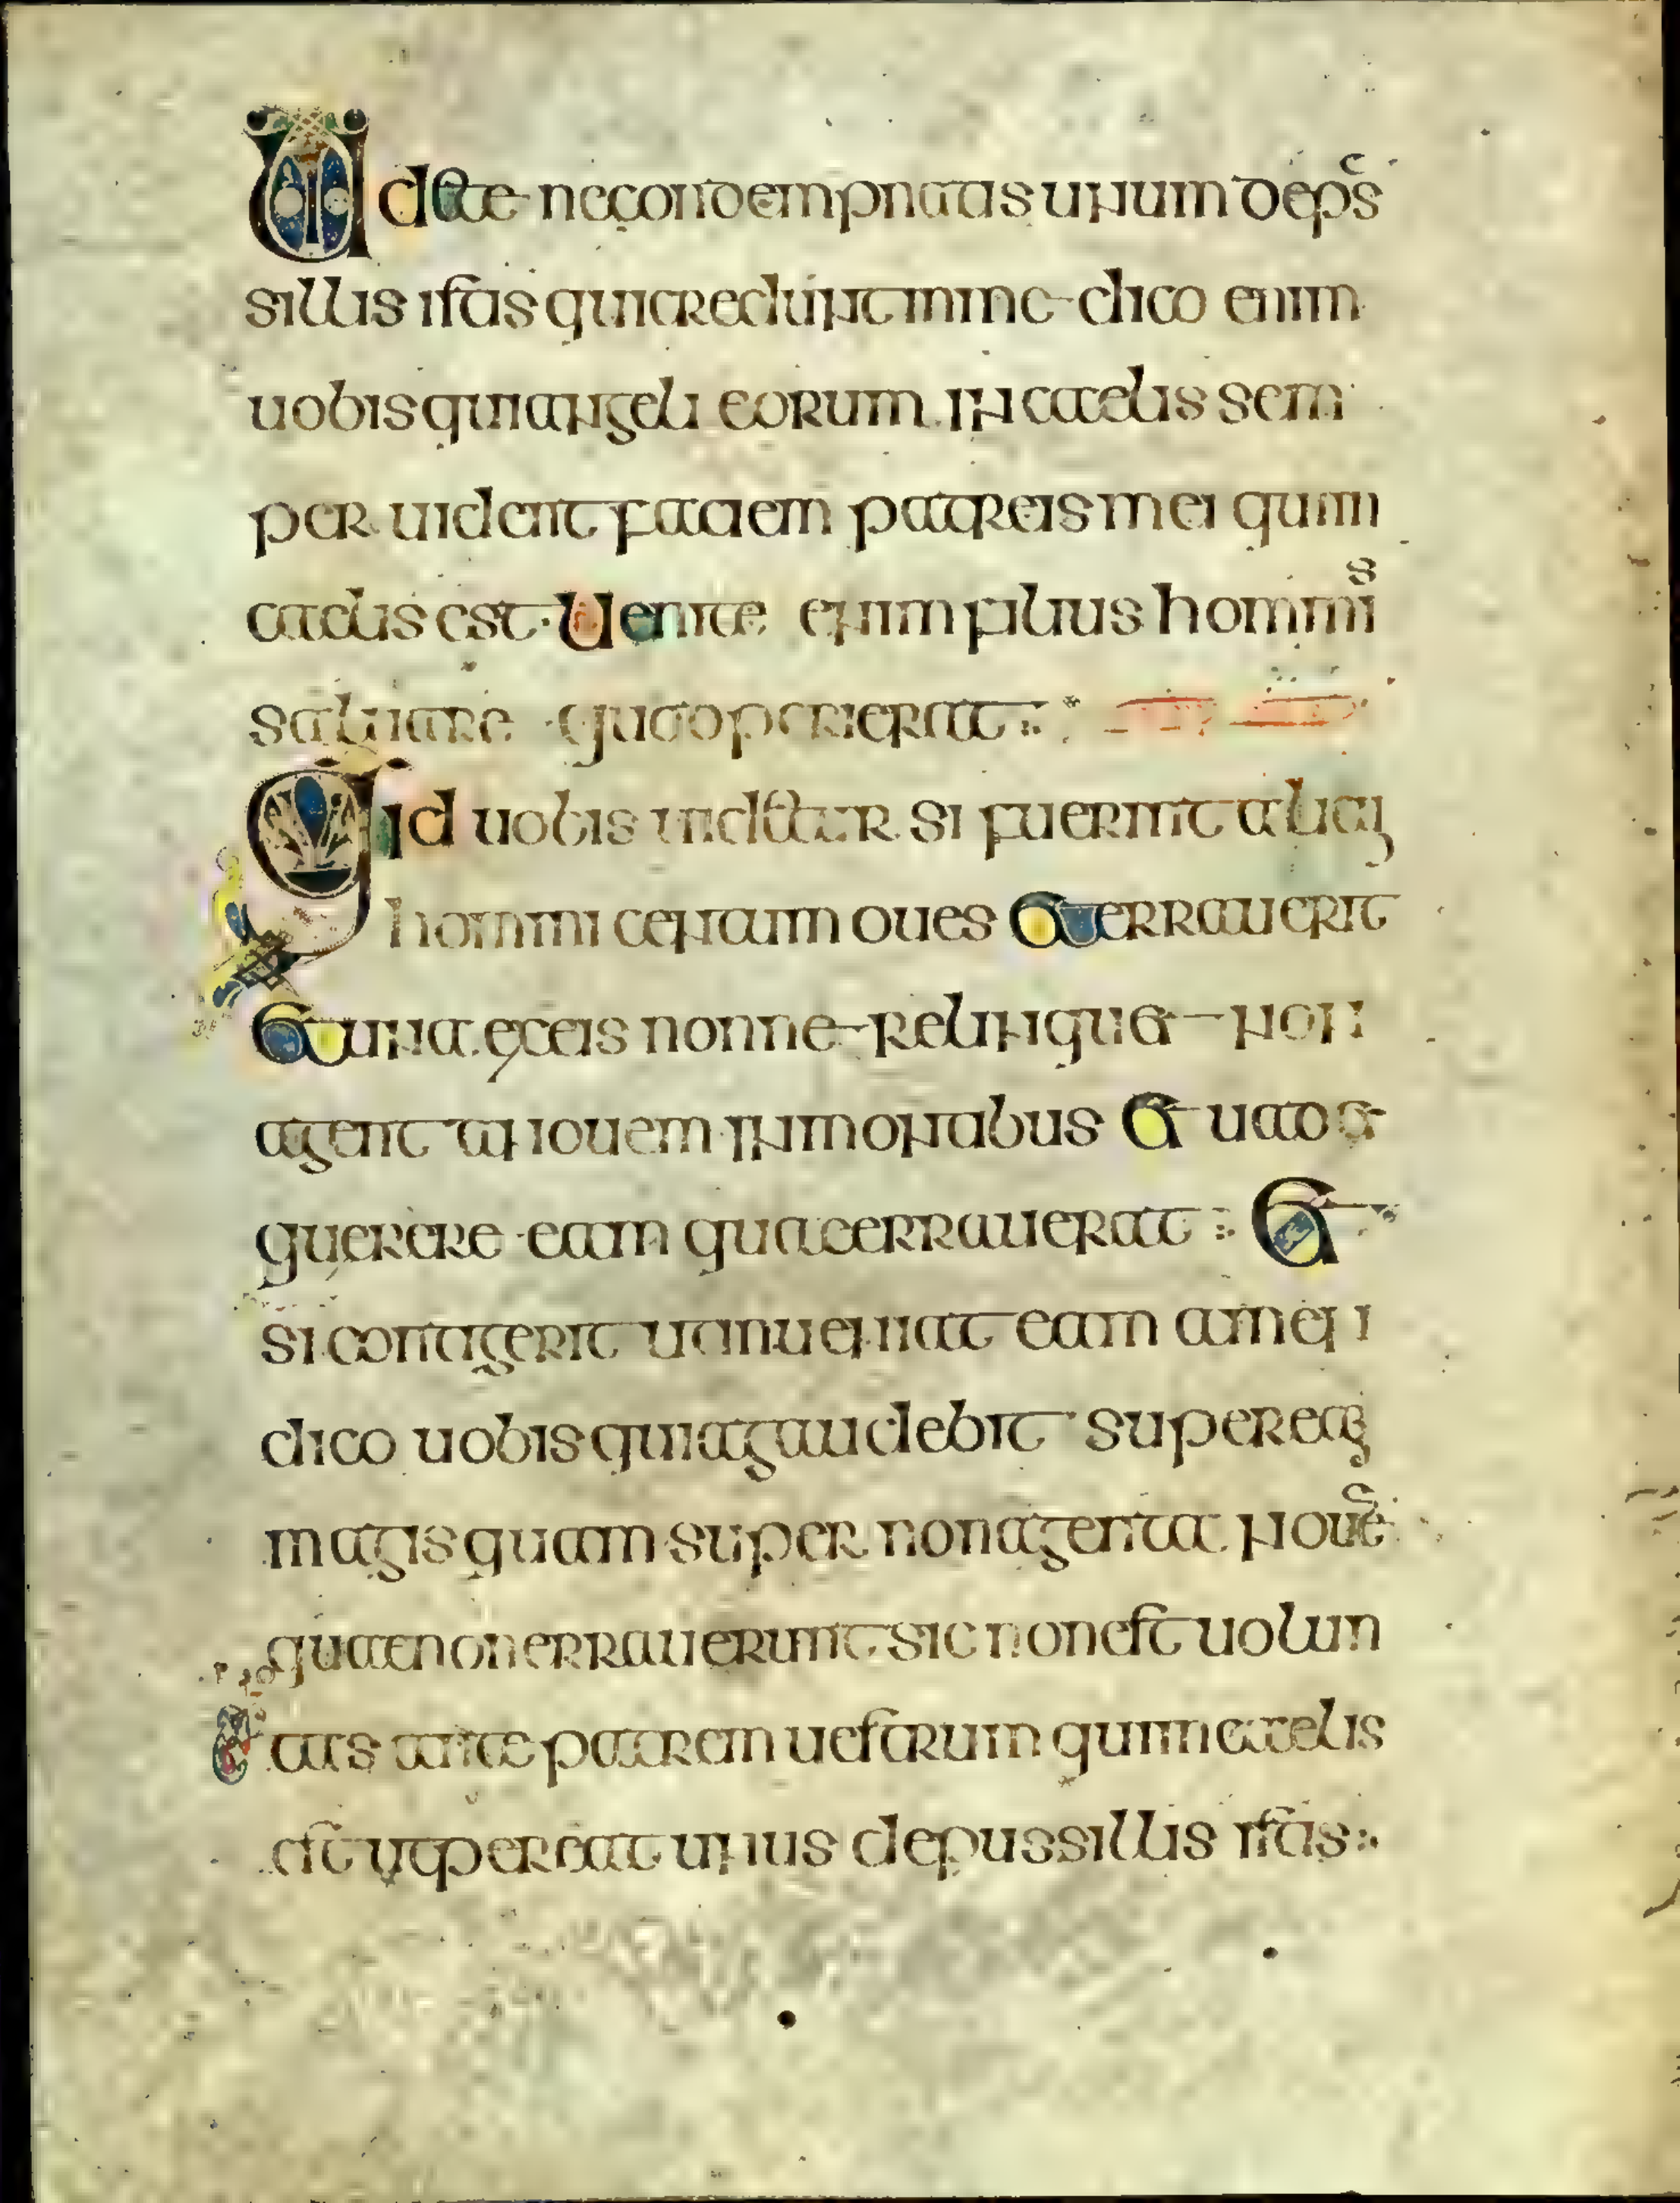 Uidete ne condempnatis unum de pus
sillis istis qui credunt in me dico enim
uobis qui angeli eorum in caelis sem
per uident faciem patreis mei qui in
caelis est Uenite enim filius homini
s
saluare quod perierat
Quid uobis uidetur si fuerint alicui
homini centum oues et erraverit
et una ex eis nonne relinquet non
agenta nouem in montibus et uadet
querere eam quae erraverat Et
si contigerit ut inueniat eam amen
dico uobis quia gaudebit super eam
magis quam super nonagenta noue
quae non errauerunt sic non est uolun
tatis ante patrem uestrum qui in caelis
est ut pereat unus de pussillis istis